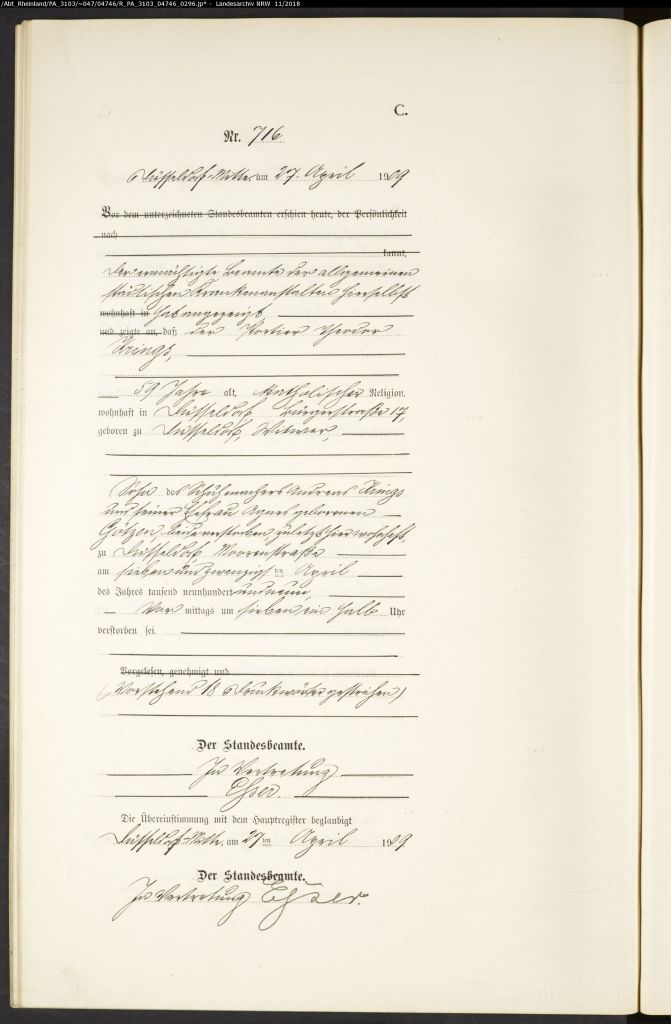 /Abt_Rheinland/PA_3103/~047/04746/R_PA_3103_04746_0296.jp* - Landesarchiv NRW 11/2018
C.
Nr. 716
Düsseldorf-Mitte, am 27. April 1909
Vor dem unterzeichneten Standesbeamten erschien heute, der Persönlichkeit
nach
kannt,
Der ermächtigte Beamte der allgemeinen
städtischen Krankenanstalten hierselbst
wohnhaft in hat angezeigt
und zeigte an, daß der Portier Theodor
Krings,
59 Jahre alt, katholischer Religion,
wohnhaft in Düsseldorf, Bürgerstraße 17,
geboren zu Düsseldorf, Witwer,
Sohn des Schuhmachers Andreas Krings
und seiner Ehefrau Agnes geborenen
Götzen, beide verstorben zuletzt hier wohnhaft,
zu Düsseldorf Moorenstraße
am sieben und zwanzigsten April
des Jahres tausend neunhundert und neun,
Vor mittags um sieben ein halb Uhr
verstorben sei.
Vorgelesen, genehmigt und
(Vorstehend 18 Druckwörter gestrichen)
Der Standesbeamte.
In Vertretung
Esser.
Die Übereinstimmung mit dem Hauptregister beglaubigt
Düsseldorf-Mitte, am 27ten April 1909
Der Standesbeamte.
In Vertretung Esser.